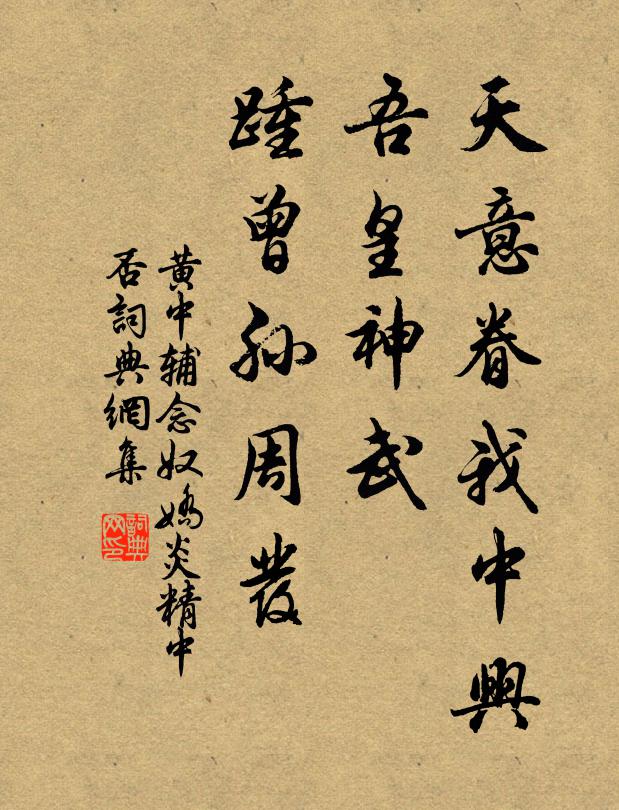 天意眷我中興
吾皇神武
踵曾孫周發
黃中辅念奴嬌炎精中
否詞典網集
詞典
网印